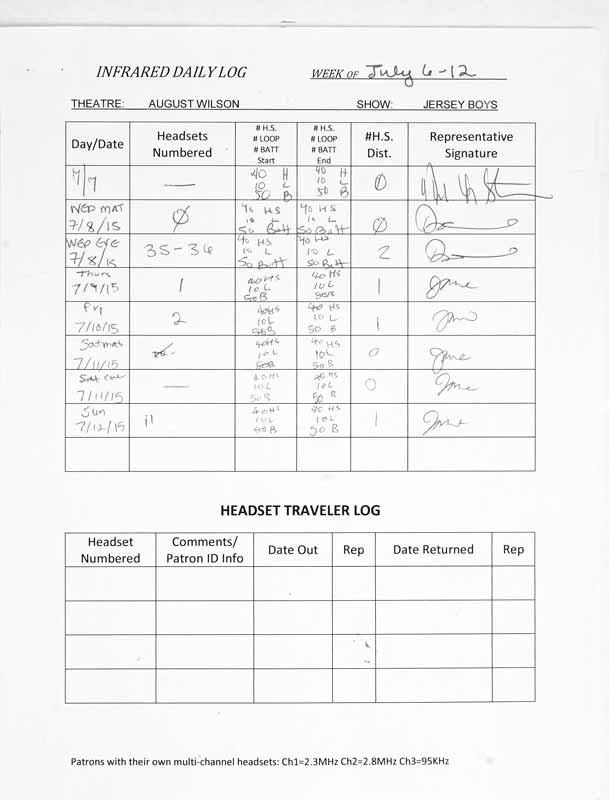 INFRARED DAILY LOG WEEK OF July 6-12
THEATRE: AUGUST WILSON SHOW: JERSEY BOYS
Day/Date Headsets Numbered # H.S. # LOOP # BATT Start # H.S. # LOOP # BATT End #H.S. Dist. Representative Signature
7/7 — 40 H 10 L 50 B 40 H 10 L 50 B Ø
WED MAT 7/8/15 Ø 40 HS 10 L 50 Batt 40 HS 10 L 50 Batt Ø
WED EVE 7/8/15 35-36 40 HS 10 L 50 Batt 40 HS 10 L 50 Batt 2
Thurs 7/9/15 1 40HS 10L 50B 40HS 10L 50B 1
Fri 7/10/15 2 40HS 10L 50B 40 HS 10L 50 B 1
Satmat 7/11/15 40HS 10L 50B 40HS 10L 50B 0
Sat eve 7/11/15 — 40HS 10L 50B 40HS 10L 50 B 0
Sun 7/12/15 11 40HS 10L 50B 40 HS 10L 50 B 1
HEADSET TRAVELER LOG
Headset Numbered Comments/ Patron ID Info Date Out Rep Date Returned Rep
Patrons with their own multi-channel headsets: Ch1=2.3MHz Ch2=2.8MHz Ch3=95KHz